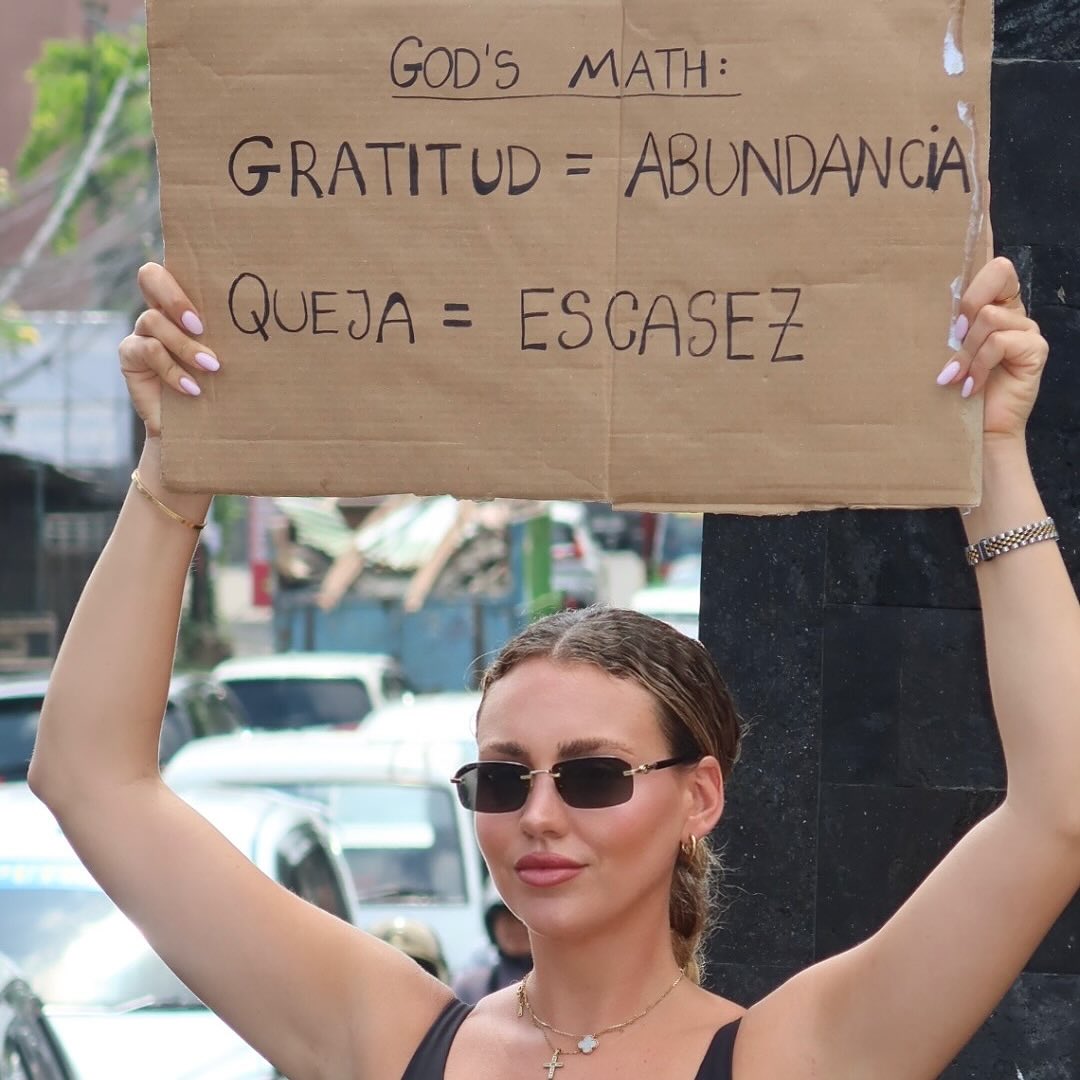 GOD'S MATH:
GRATITUD = ABUNDANCiA
QUEJA = ESCASEZ